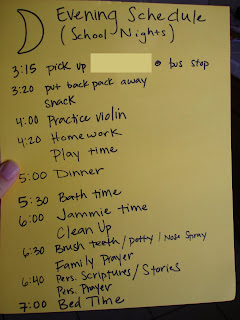 Evening Schedule
(School Nights)
3:15 pick up @ bus stop
3:20 put back pack away
snack
4:00 Practice violin
4:20 Homework
Play time
5:00 Dinner
5:30 Bath time
6:00 Jammie time
Clean Up
6:30 Brush teath/potty/Nose Spray
Family Prayer
6:40 Pers. Scriptures/Stories
Pers. Prayer
7:00 Bed Time